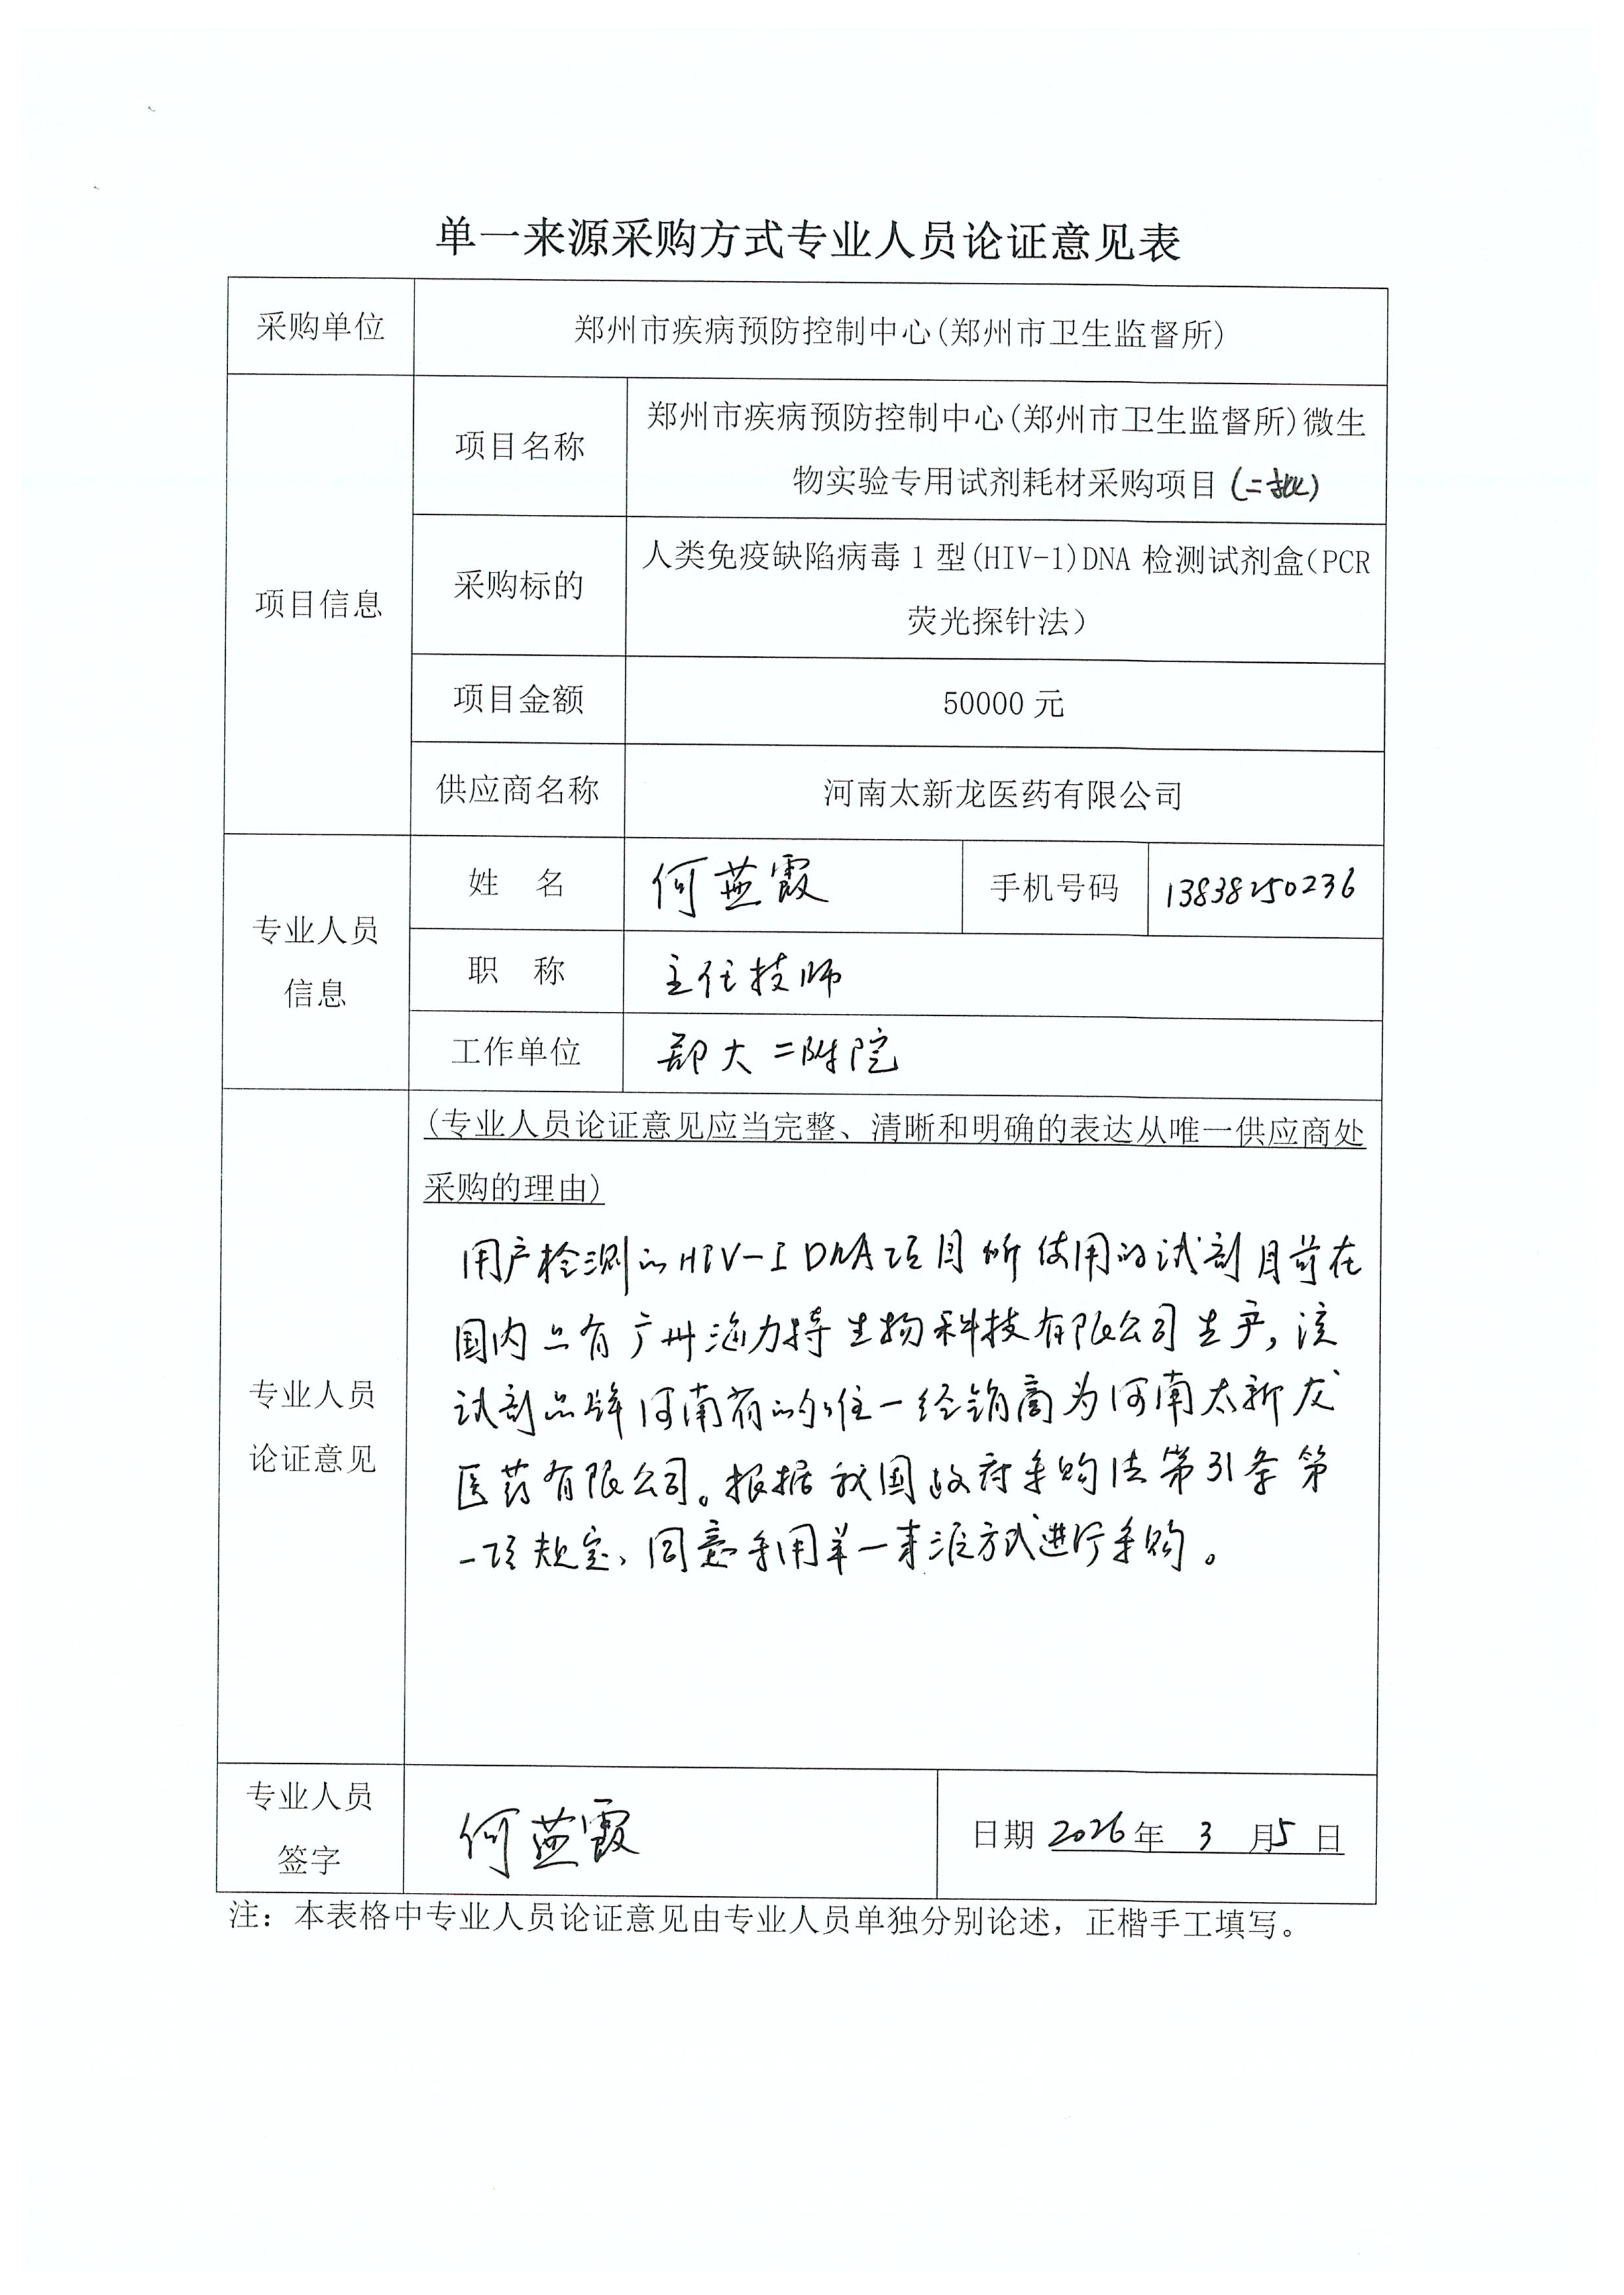 单一来源采购方式专业人员论证意见表
采购单位
郑州市疾病预防控制中心(郑州市卫生监督所)
项目信息
项目名称
郑州市疾病预防控制中心(郑州市卫生监督所)微生
物实验专用试剂耗材采购项目(二批)
采购标的
人类免疫缺陷病毒1型(HIV-1)DNA检测试剂盒(PCR
荧光探针法)
项目金额
50000元
供应商名称
河南太新龙医药有限公司
专业人员
信息
姓 名
何燕霞
手机号码
13838250236
职 称
主任技师
工作单位
郑大二附院
专业人员
论证意见
(专业人员论证意见应当完整、清晰和明确的表达从唯一供应商处
采购的理由)
用户检测的HIV-I DNA项目所使用的试剂目前在
国内只有广州海力特生物科技有限公司生产,该
试剂品牌河南省的唯一经销商为河南太新龙
医药有限公司。根据我国政府采购法第31条第
一项规定,同意采用单一来源方式进行采购。
专业人员
签字
何燕霞
日期 2026年 3 月5 日
注:本表格中专业人员论证意见由专业人员单独分别论述,正楷手工填写。